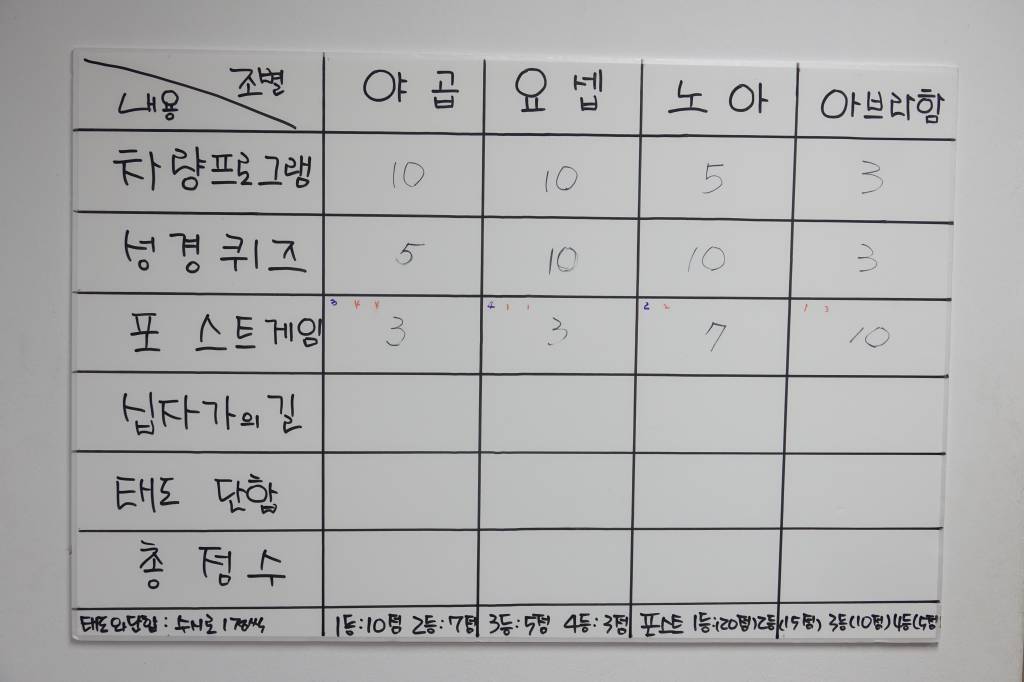 조별 야곱 요셉 노아 아브라함
내용
차량프로그램 10 10 5 3
성경퀴즈 5 10 10 3
3 4 4 2 1 1 2 2 1 3
포스트게임 3 3 7 10
십자가의길
태도 단합
총점수
태도와단합: 수시로 1점씩 1등:10점 2등:7점 3등:5점 4등:3점 포스트 1등:(20점)2등(15점) 3등(10점)4등(5점